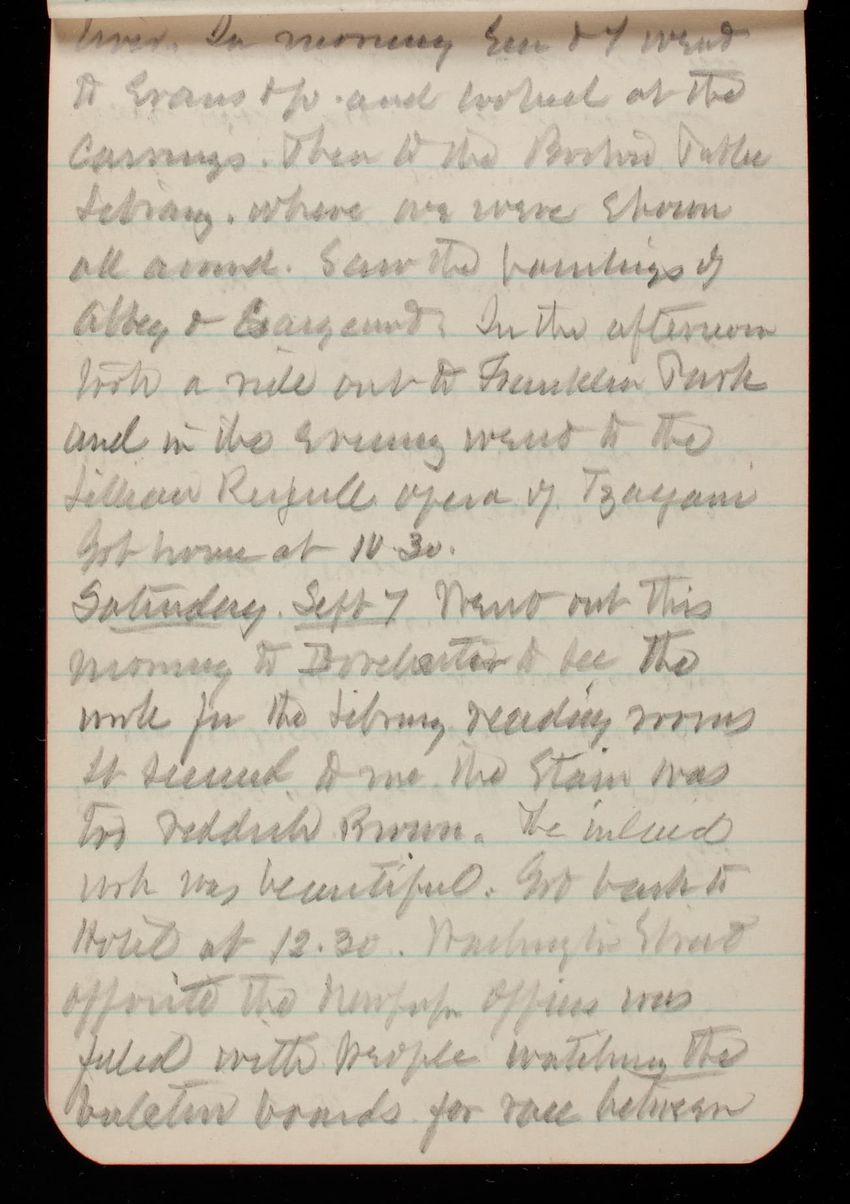 river. In morning Em & I went
to Evans & Co. and looked at the
carvings. Then to the Boston Public
Library. where we were shown
all around. Saw the paintings of
Abbey & Sargeant. In the afternoon
took a ride out to Franklin Park
and in the evening went to the
Lillian Russell opera of Tzagani
Got home at 10.30.
Saturday. Sept 7 Went out this
morning to Dorchester to see the
work for the Library reading rooms
It seemed to me the stain was
too reddish Brown. The inlaid
work was beautiful. Got back to
Hotel at 12.30. Washington Street
opposite the Newspap offices was
filled with people watching the
buletin boards for race between